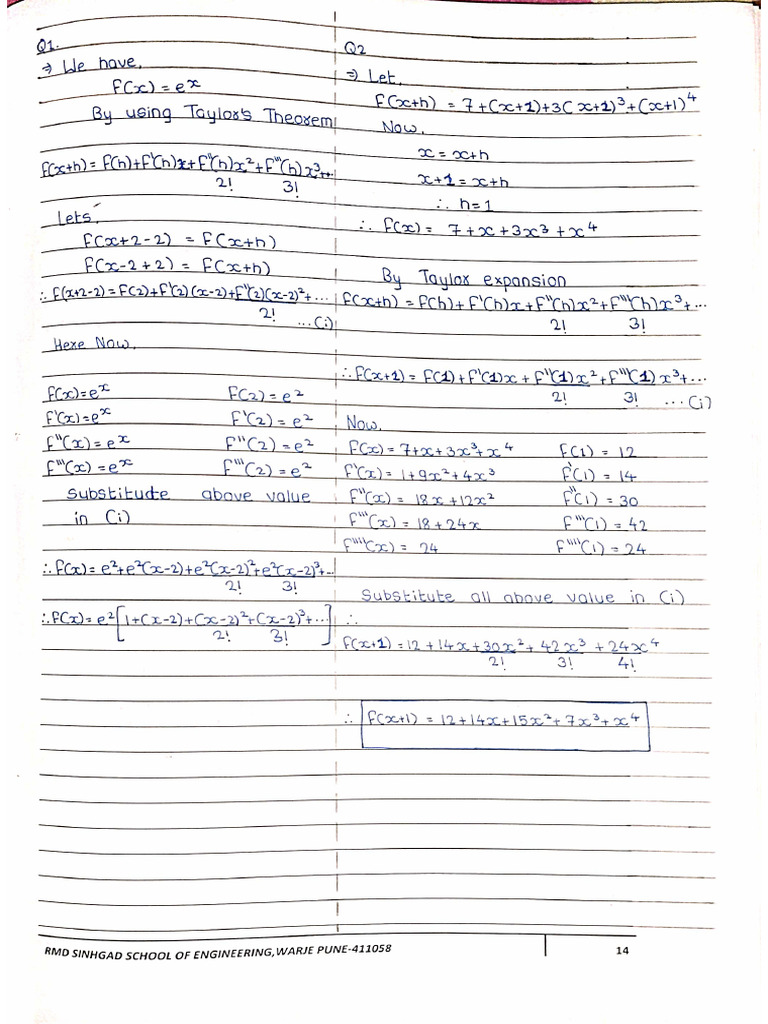 Q1.
⇒ We have,
f(x) = e^x
By using Taylor's Theorem
f(x+h) = f(h)+f'(h)x+f''(h)x²+f'''(h)x³+...
2! 3!
Lets,
f(x+2-2) = f(x+h)
f(x-2+2) = f(x+h)
∴ f(x+2-2) = f(2)+f'(2)(x-2)+f''(2)(x-2)²+...
2! ...(i)
Here Now,
f(x)=e^x f(2)=e²
f'(x)=e^x f'(2)=e²
f''(x)=e^x f''(2)=e²
f'''(x)=e^x f'''(2)=e²
Substitude above value
in (i)
∴ f(x)= e²+e²(x-2)+e²(x-2)²+e²(x-2)³+...
2! 3!
∴ f(x)= e²[1+(x-2)+(x-2)²+(x-2)³+...]
2! 3!
Q2
⇒ Let,
f(x+h) = 7+(x+1)+3(x+1)³+(x+1)⁴
Now,
x = x+h
x+1 = x+h
∴ h=1
∴ f(x) = 7+x+3x³+x⁴
By Taylor expansion
f(x+h) = f(h)+f'(h)x+f''(h)x²+f'''(h)x³+...
2! 3!
∴ f(x+1) = f(1)+f'(1)x+f''(1)x²+f'''(1)x³+...
2! 3! ...(i)
Now,
f(x) = 7+x+3x³+x⁴ f(1) = 12
f'(x) = 1+9x²+4x³ f'(1) = 14
f''(x) = 18x+12x² f''(1) = 30
f'''(x) = 18+24x f'''(1) = 42
f''''(x) = 24 f''''(1) = 24
Substitute all above value in (i)
∴
f(x+1) = 12+14x+30x²+42x³+24x⁴
2! 3! 4!
∴ f(x+1) = 12+14x+15x²+7x³+x⁴
RMD SINHGAD SCHOOL OF ENGINEERING,WARJE PUNE-411058 14